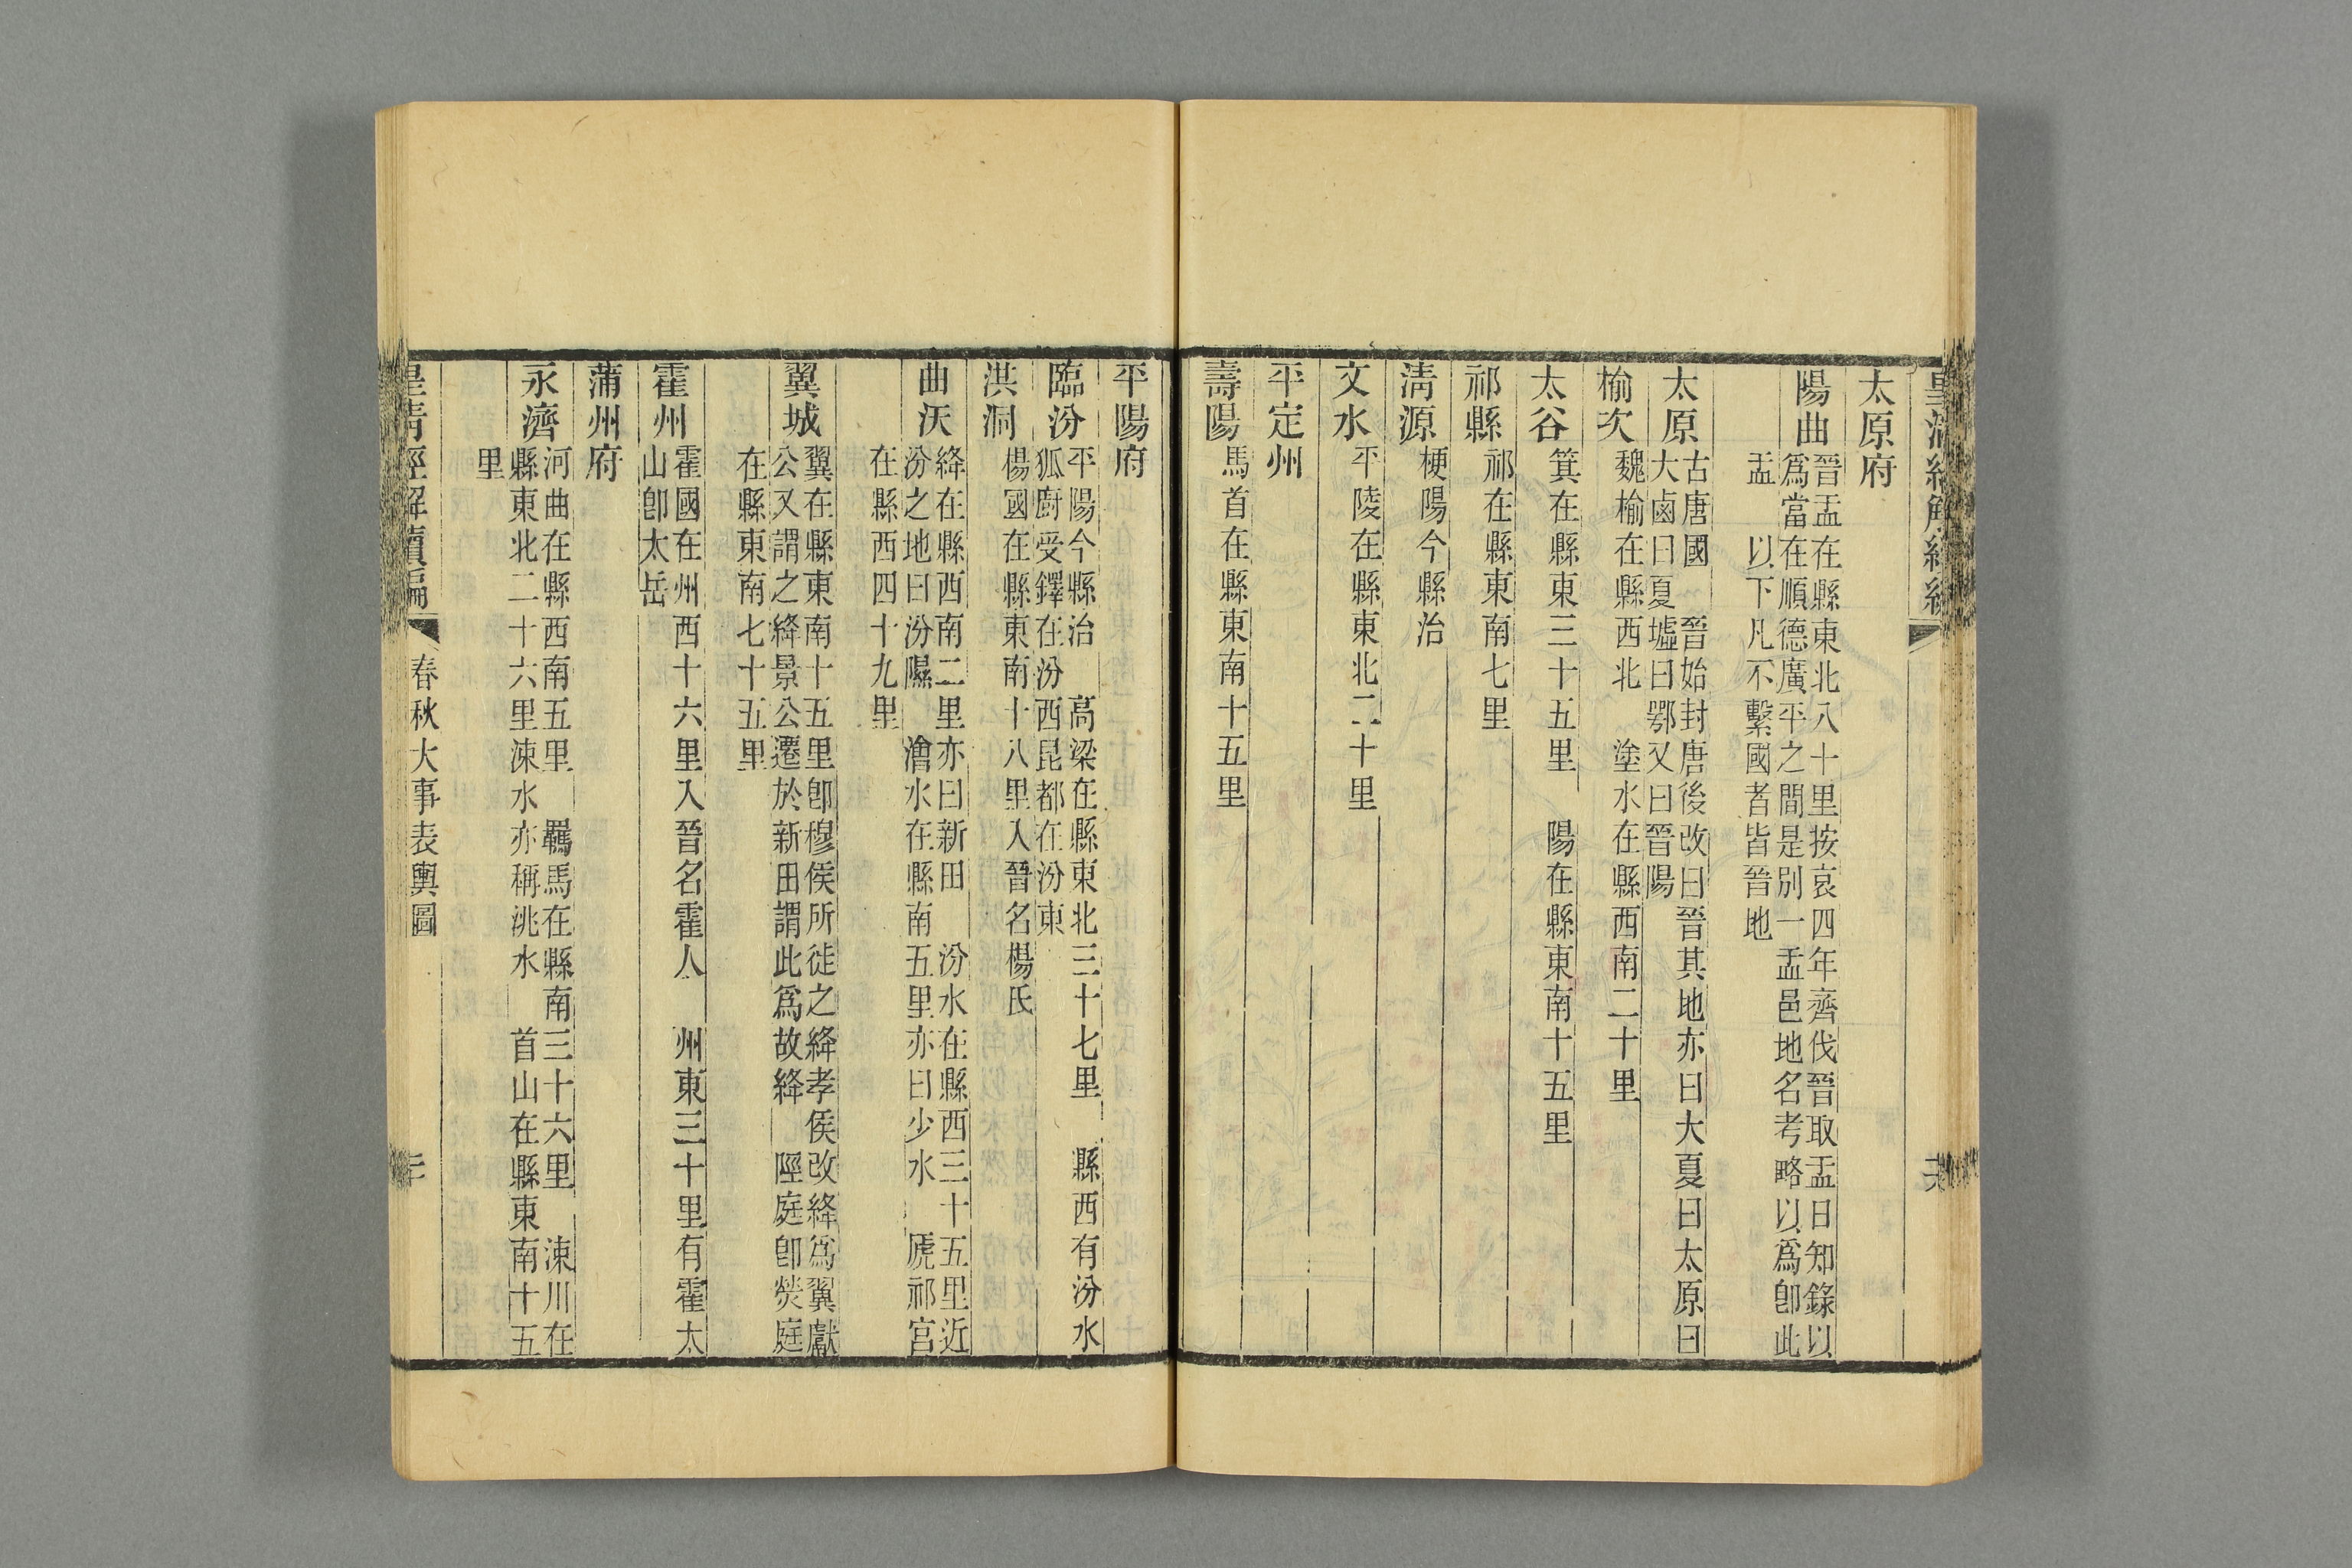 太原府
陽曲
晉盂在縣東北八十里按哀四年齊伐晉取盂日知錄以
爲當在順德廣平之間是別一盂邑地名考略以爲卽此
盂　以下凡不繫國者皆晉地
太原
古唐國　晉始封唐後改曰晉其地亦曰大夏曰太原曰
大鹵曰夏墟曰鄂又曰晉陽
榆次
魏榆在縣西北　塗水在縣西南二十里
太谷
箕在縣東三十五里　陽在縣東南十五里
祁縣
祁在縣東南七里
淸源
梗陽今縣治
文水
平陵在縣東北二十里
平定州
壽陽
馬首在縣東南十五里
平陽府
臨汾
平陽今縣治　高梁在縣東北三十七里　縣西有汾水
狐廚受鐸在汾西昆都在汾東
洪洞
楊國在縣東南十八里入晉名楊氏
曲沃
絳在縣西南二里亦曰新田　汾水在縣西三十五里近
汾之地曰汾隰　澮水在縣南五里亦曰少水　虒祁宮
在縣西四十九里
翼城
翼在縣東南十五里卽穆侯所徙之絳孝侯改絳爲翼獻
公又謂之絳景公遷於新田謂此爲故絳　陘庭卽熒庭
在縣東南七十五里
霍州
霍國在州西十六里入晉名霍人　州東三十里有霍太
山卽太岳
蒲州府
永濟
河曲在縣西南五里　羈馬在縣南三十六里　涑川在
縣東北二十六里涑水亦稱洮水　首山在縣東南十五
里
皇清經解續編
春秋大事表輿圖